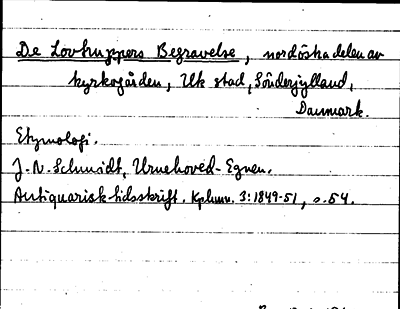 De Lovhuggers Begravelse, nordöstra delen av
kyrkogården, Uk stad, Sönderjylland,
Danmark.
Etymologi.
J. N. Schmidt, Urnehoved-Egnen.
Antiquarisk tidsskrift. Kphmn. 3: 1849-51, s. 54.